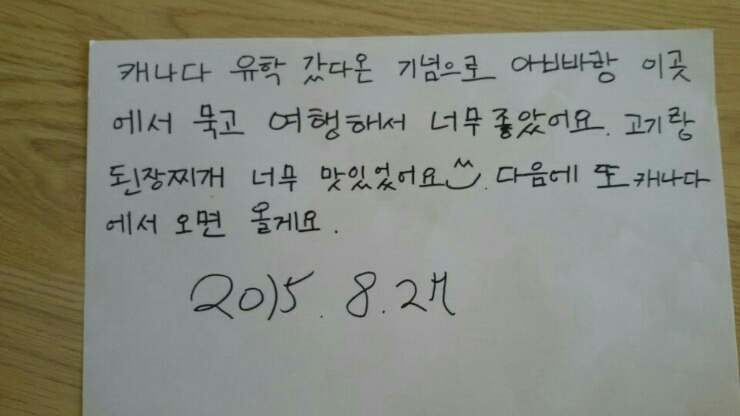 캐나다 유학 갔다온 기념으로 아빠랑 이곳
에서 묵고 여행해서 너무좋았어요. 고기랑
된장찌개 너무 맛있었어요^^. 다음에 또 캐나다
에서 오면 올게요.
2015. 8. 27